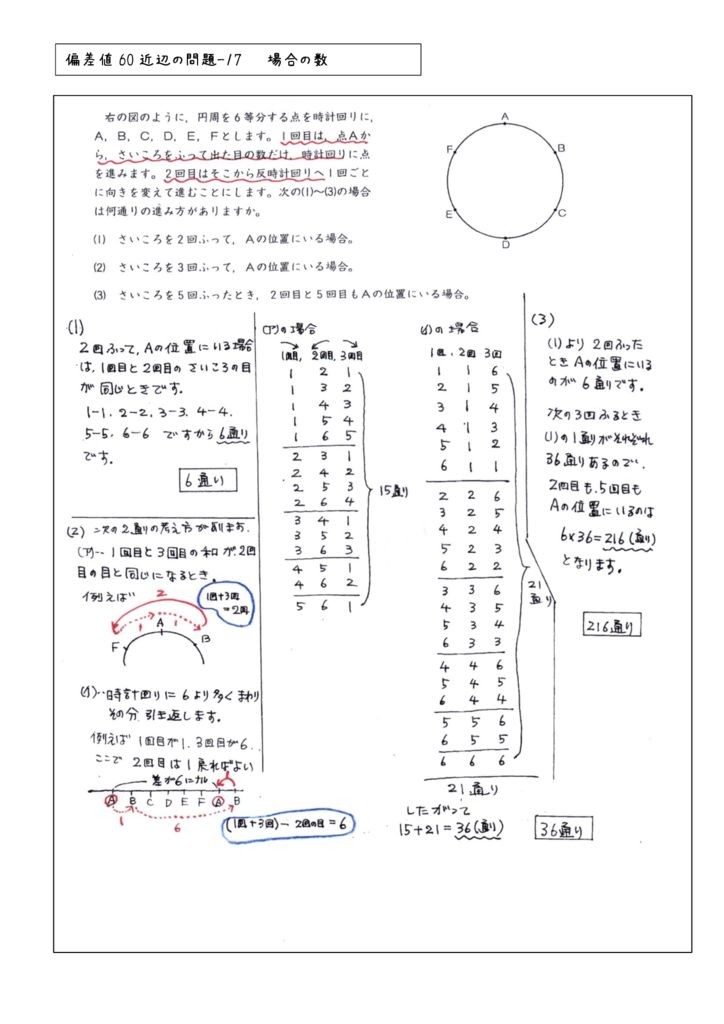 偏差値60近辺の問題-17 場合の数
右の図のように，円周を6等分する点を時計回りに，
A，B，C，D，E，Fとします。1回目は，点Aか
ら，さいころをふって出た目の数だけ，時計回りに点
を進みます。2回目はそこから反時計回りへ1回ごと
に向きを変えて進むことにします。次の(1)～(3)の場合
は何通りの進み方がありますか。
(1) さいころを2回ふって，Aの位置にいる場合。
(2) さいころを3回ふって，Aの位置にいる場合。
(3) さいころを5回ふったとき，2回目と5回目もAの位置にいる場合。
A
B
C
D
E
F
(1)
2回ふって，Aの位置にいる場合
は，1回目と2回目のさいころの目
が同じときです。
1-1．2-2．3-3．4-4．
5-5．6-6 ですから6通り
です。
6通り
(2) 次の2通りの考え方があります．
(ア)‥1回目と3回目の和が，2回
目の目と同じになるとき．
例えば
1回+3回
=2回
2
1
1
A
F
B
(イ)‥時計回りに6より多くまわり
その分，引き返します。
例えば 1回目が1．3回目が6．
ここで 2回目は1戻ればよい
差が6にナル
A B C D E F A B
1
6
(1回+3回)-2回の目=6
(ア)の場合
1回目，2回目，3回目
1 2 1
1 3 2
1 4 3
1 5 4
1 6 5
2 3 1
2 4 2
2 5 3
2 6 4
3 4 1
3 5 2
3 6 3
4 5 1
4 6 2
5 6 1
15通り
(イ)の場合
1回．2回 3回
1 1 6
2 1 5
3 1 4
4 1 3
5 1 2
6 1 1
2 2 6
3 2 5
4 2 4
5 2 3
6 2 2
3 3 6
4 3 5
5 3 4
6 3 3
4 4 6
5 4 5
6 4 4
5 5 6
6 5 5
6 6 6
21
通り
21通り
したがって
15+21=36(通り)
36通り
(3)
(1)より 2回ふった
とき Aの位置にいる
のが 6通りです。
次の3回ふるとき
(1)の1通りがそれぞれ
36通りあるので，
2回目も，5回目も
Aの位置にいるのは
6×36=216(通り)
となります。
216通り